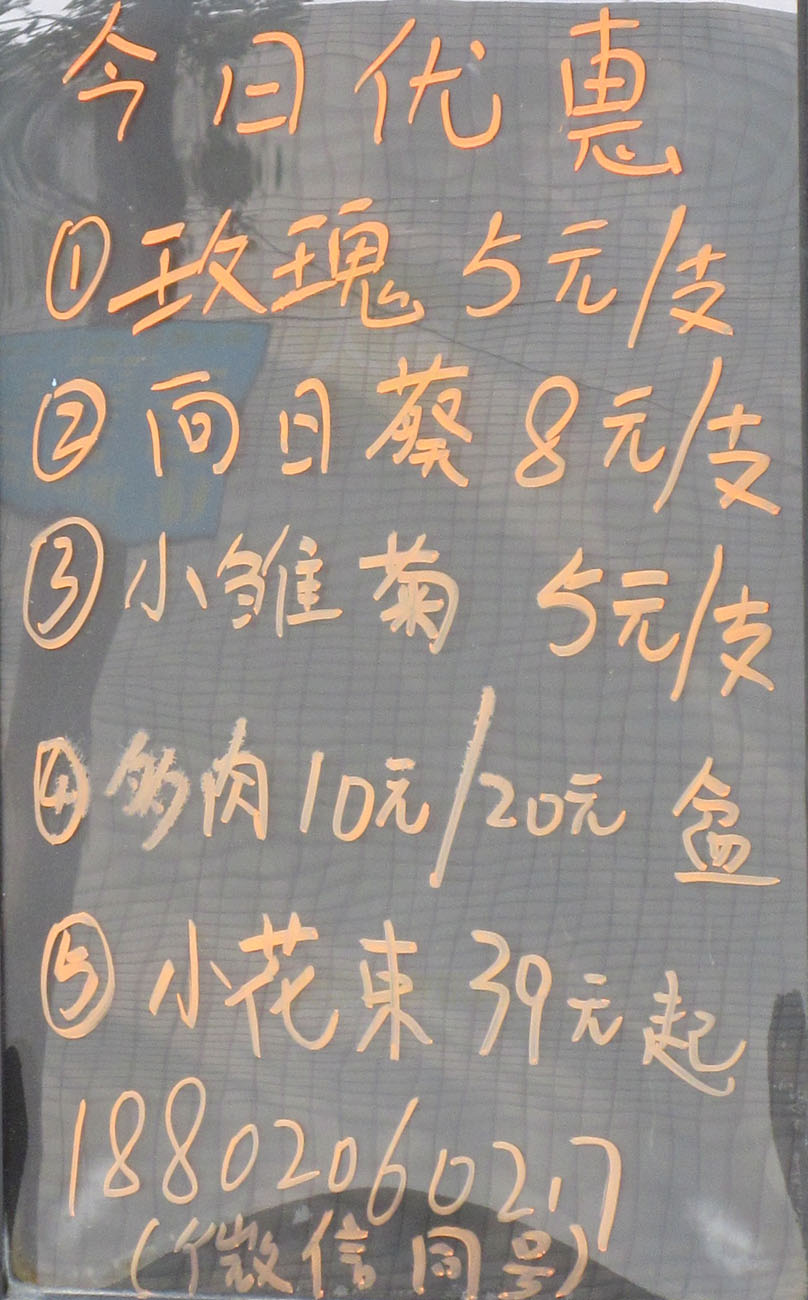 今日优惠
①玫瑰 5元/支
②向日葵 8元/支
③小雏菊 5元/支
④多肉10元/20元 盆
⑤小花束 39元起
18802060217
(微信同号)